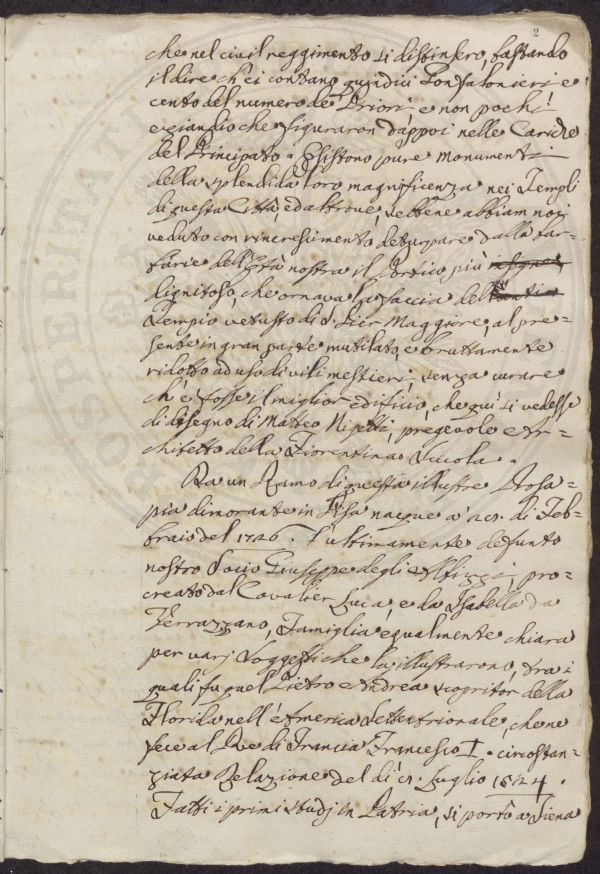 2
che nel civil reggimento si distinsero, bastando
il dire ch'ei contano quindici Gonfalonieri e
cento del numero de' Priori, e non pochi
eziandio che figuraron dappoi nelle Cariche
del Principato. Esistono pure monumenti
della splendida loro magnificenza nei Templi
di questa Città, ed altrove sebbene abbiam noi
veduto con rincrescimento deturpare dalla bar=
barie dell'Età nostra il Portico più insigne
dignitoso, che ornava la faccia dell'antico
Tempio vetusto di S. Pier Maggiore, al pre=
sente in gran parte mutilato, e bruttamente
ridotto ad uso di vili mestieri, senza curare
ch'e' fosse il miglior edificio, che quì si vedesse
di disegno di Matteo Nigetti, pregevole Ar=
chitetto della Fiorentina Scuola.
Da un Ramo di questa illustre Prosa=
pia dimorante in Pisa nacque a' 25. di Feb=
braio del 1726. l'ultimamente defunto
nostro Socio Giuseppe degli Albizzi, pro=
creato dal Cavalier Luca, e da Isabella da
Verrazzano, Famiglia egualmente chiara
per varj Soggetti che la illustrarono, tra i
quali fu quel Pietro Andrea scopritor della
Florida nell'America Settentrionale, che ne
fece al Re di Francia Francesco I. circostan=
ziata Relazione del dì 8. Luglio 1524.
Fatti i primi studj in Patria, si portò a Siena